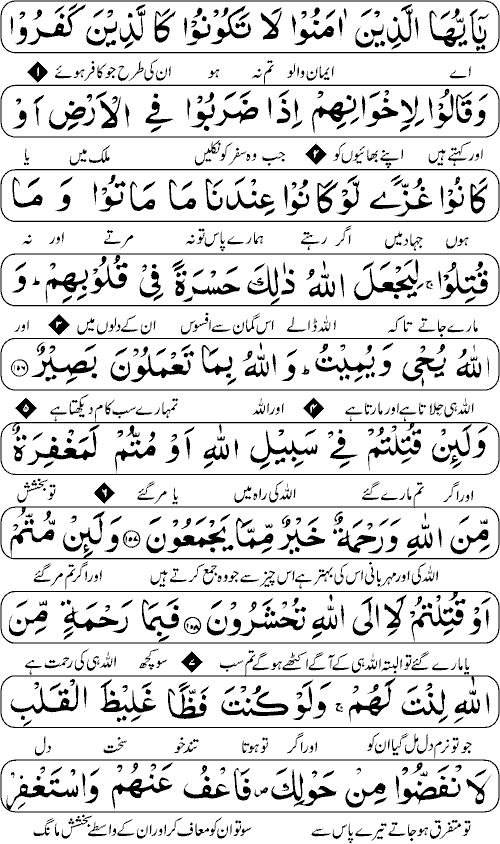 يٰٓاَيُّهَا الَّذِيْنَ اٰمَنُوْا لَا تَكُوْنُوْا كَالَّذِيْنَ كَفَرُوْا
اے ایمان والو تم نہ ہو ان کی طرح جو کافر ہوئے ۱
وَقَالُوْا لِاِخْوَانِهِمْ اِذَا ضَرَبُوْا فِي الْاَرْضِ اَوْ
اور کہتے ہیں اپنے بھائیوں کو ۲ جب وہ سفر کو نکلیں ملک میں یا
كَانُوْا غُزًّى لَّوْ كَانُوْا عِنْدَنَا مَا مَاتُوْا وَ مَا
ہوں جہاد میں اگر رہتے ہمارے پاس تو نہ مرتے اور نہ
قُتِلُوْا ۚ لِيَجْعَلَ اللّٰهُ ذٰلِكَ حَسْرَةً فِيْ قُلُوْبِهِمْ ؕ وَ
مارے جاتے تاکہ اللہ ڈالے اس گمان سے افسوس ان کے دلوں میں ۳ اور
اللّٰهُ يُحْيٖ وَيُمِيْتُ ؕ وَاللّٰهُ بِمَا تَعْمَلُوْنَ بَصِيْرٌ ۝۱۵۶
اللہ ہی جلاتا ہے اور مارتا ہے ۴ اور اللہ تمہارے سب کام دیکھتا ہے ۵
وَلَئِنْ قُتِلْتُمْ فِيْ سَبِيْلِ اللّٰهِ اَوْ مُتُّمْ لَمَغْفِرَةٌ
اور اگر تم مارے گئے اللہ کی راہ میں یا مر گئے ۶ تو بخشش
مِّنَ اللّٰهِ وَرَحْمَةٌ خَيْرٌ مِّمَّا يَجْمَعُوْنَ ۝۱۵۷ وَلَئِنْ مُّتُّمْ
اللہ کی اور مہربانی اس کی بہتر ہے اس چیز سے جو وہ جمع کرتے ہیں اور اگر تم مر گئے
اَوْ قُتِلْتُمْ لَاِالَى اللّٰهِ تُحْشَرُوْنَ ۝۱۵۸ فَبِمَا رَحْمَةٍ مِّنَ
یا مارے گئے تو البتہ اللہ ہی کے آگے اکٹھے ہو گے تم سب ۷ سو کچھ اللہ ہی کی رحمت ہے
اللّٰهِ لِنْتَ لَهُمْ ۚ وَلَوْ كُنْتَ فَظًّا غَلِيْظَ الْقَلْبِ
جو تو نرم دل مل گیا ان کو اور اگر تو ہوتا تند خو سخت دل
لَانْفَضُّوْا مِنْ حَوْلِكَ ۪ فَاعْفُ عَنْهُمْ وَاسْتَغْفِرْ
تو متفرق ہو جاتے تیرے پاس سے سو تو ان کو معاف کر اور ان کے واسطے بخشش مانگ